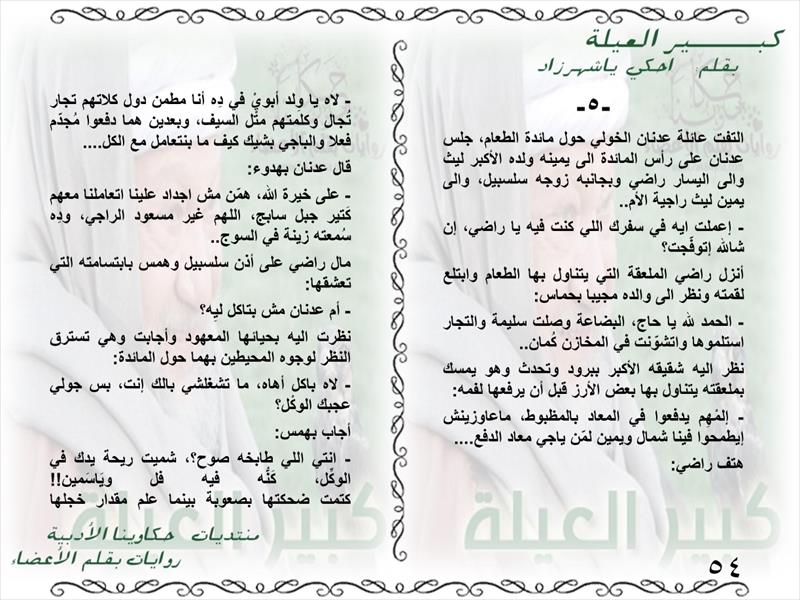 كبـــــــير العيلة
بقلم احكي ياشهرزاد
-٥-
التفت عائلة عدنان الخولي حول مائدة الطعام، جلس
عدنان على رأس المائدة الى يمينه ولده الأكبر ليث
والى اليسار راضي وبجانبه زوجه سلسبيل، والى
يمين ليث راجية الأم..
- إعملت ايه في سفرك اللي كنت فيه يا راضي، إن
شالله إتوفّجت؟
أنزل راضي الملعقة التي يتناول بها الطعام وابتلع
لقمته ونظر الى والده مجيبا بحماس:
- الحمد لله يا حاج، البضاعة وصلت سليمة والتجار
استلموها واتشوّنت في المخازن كُمان..
نظر اليه شقيقه الأكبر ببرود وتحدث وهو يمسك
بملعقته يتناول بها بعض الأرز قبل أن يرفعها لفمه:
- إلمُهِم يدفعوا في المعاد بالمظبوط، ماعاوزينش
إيطمحوا فينا شمال ويمين لمّن ياجي معاد الدفع....
هتف راضي:
- لاه يا ولد أبويْ في دِه أنا مطمن دول كلاتهم تجار
تُجال وكلَمتهم مثل السيف، وبعدين هما دفعوا مُجدّم
فعلا والباجي بشيك كيف ما بنتعامل مع الكل....
قال عدنان بهدوء:
- على خيرة الله، همّن مش اجداد علينا اتعاملنا معهم
كَتير جبل سابج، اللهم غير مسعود الراجي، ودِه
سُمعته زينة في السوج..
مال راضي على أذن سلسبيل وهمس بابتسامته التي
تعشقها:
- أم عدنان مش بتاكل ليه؟
نظرت اليه بحيائها المعهود وأجابت وهي تسترق
النظر لوجوه المحيطين بهما حول المائدة:
- لاه باكل أهاه، ما تشغلشي بالك إنت، بس جولي
عجبك الوكْل؟
أجاب بهمس:
- إنتي اللي طابخه صوح؟، شميت ريحة يدك في
الوكْل، كَنُّه فيه فل وياسمين!!
كتمت ضحكتها بصعوبة بينما علم مقدار خجلها
منتديات حكاوينا الأدبية
روايات بقلم الأعضاء
كبير العيلة
كبير العيلة
٥٤